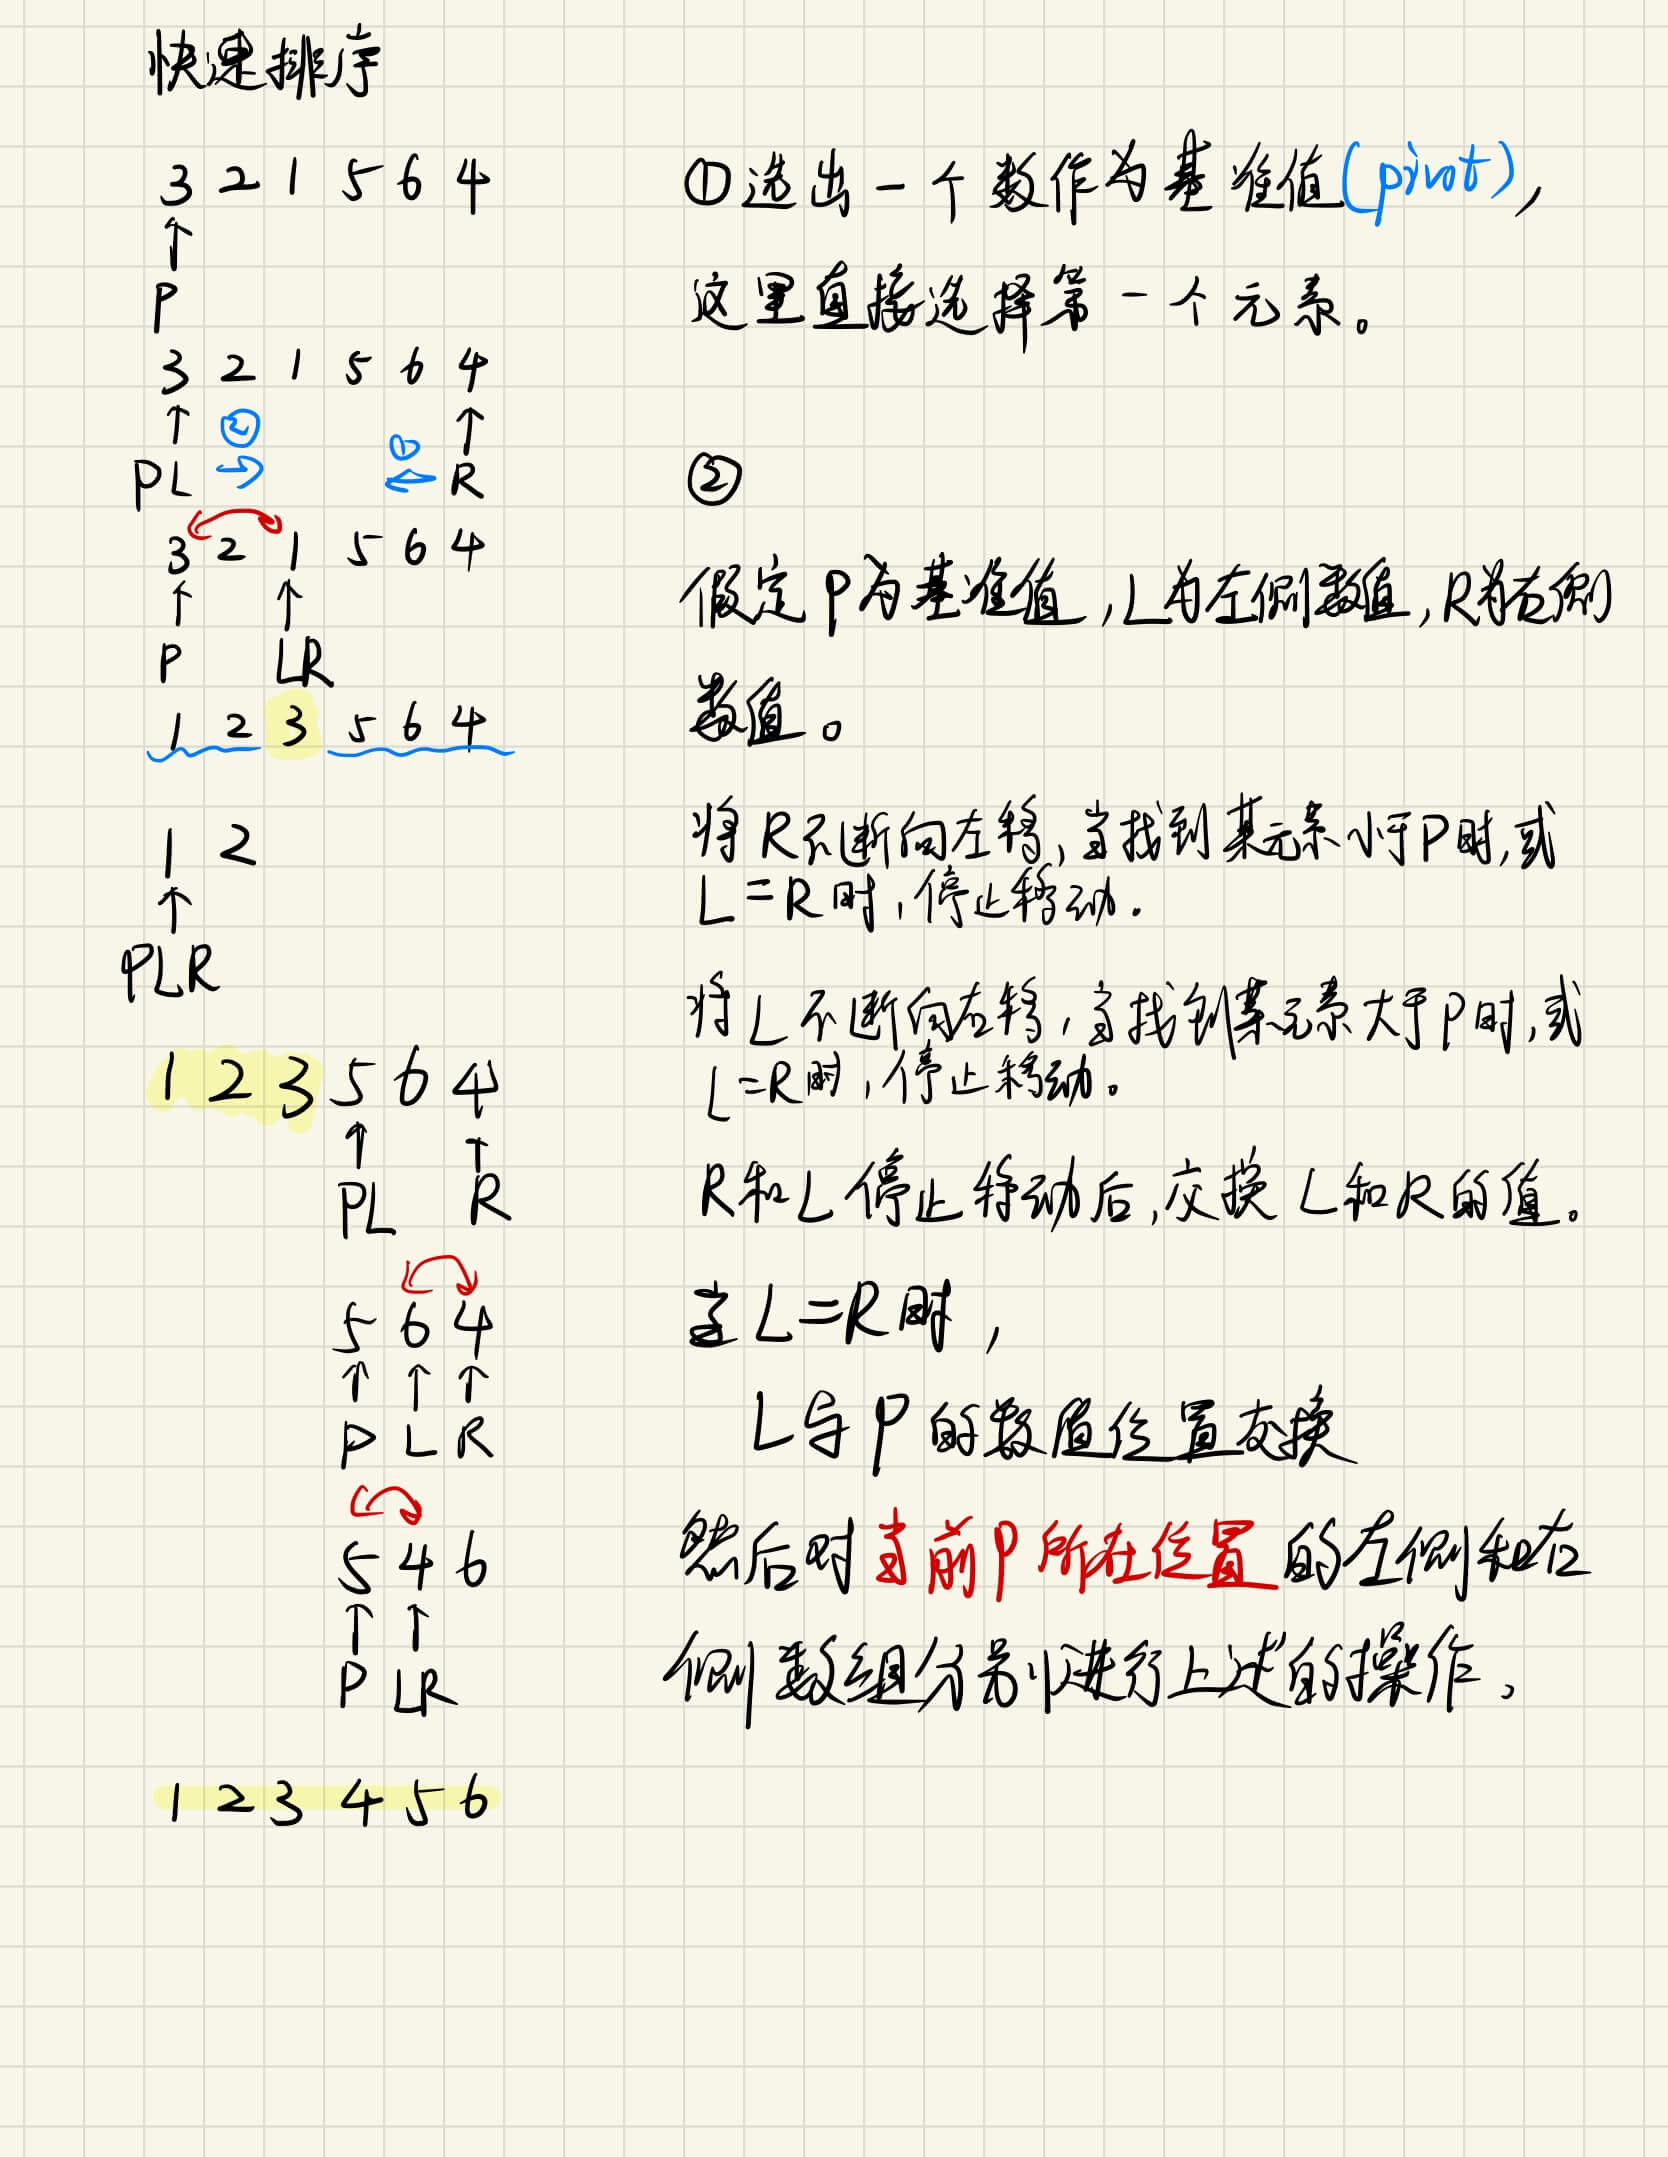 快速排序
3 2 1 5 6 4
↑
P
3 2 1 5 6 4
↑ ② ① ↑
PL → ← R
3 2 1 5 6 4
↑ ↑
P LR
1 2 3 5 6 4
1 2
↑
PLR
1 2 3 5 6 4
↑ ↑
PL R
5 6 4
↑ ↑ ↑
P L R
5 4 6
↑ ↑
P LR
1 2 3 4 5 6
①选出一个数作为基准值(pivot),
这里直接选择第一个元素。
②
假定P为基准值,L为左侧数值,R为右侧
数值。
将R不断向左移,当找到某元素小于P时,或
L=R时,停止移动.
将L不断向右移,当找到某元素大于P时,或
L=R时,停止移动。
R和L停止移动后,交换L和R的值。
当L=R时,
L与P的数值位置交换
然后对当前P所在位置的左侧和右
侧数组分别进行上述的操作、